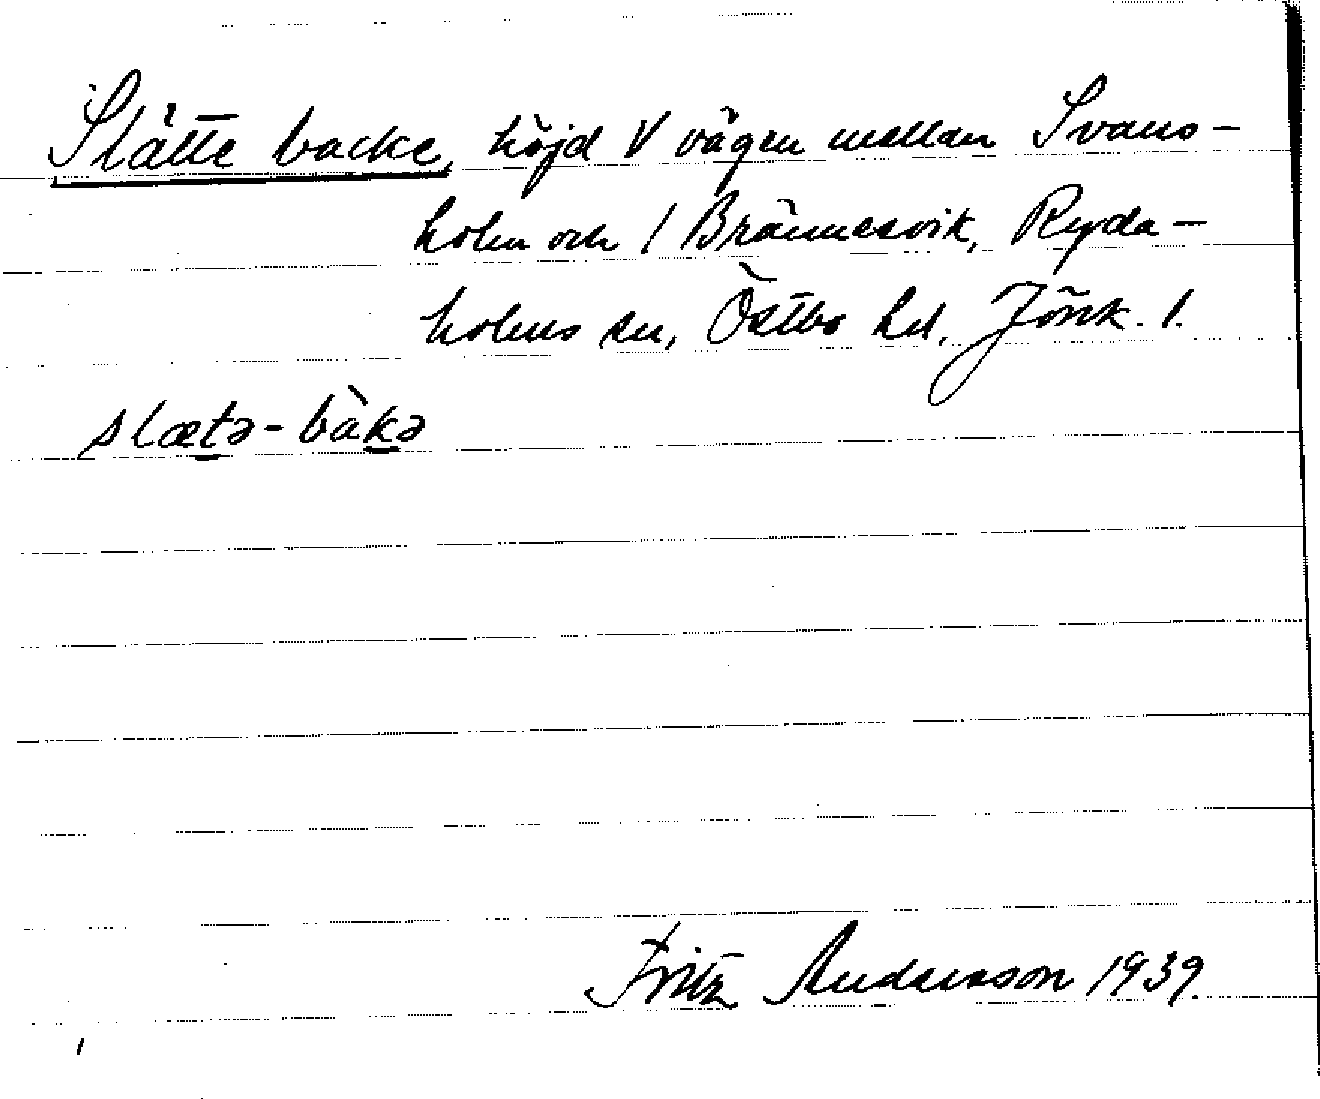 Slätte backe, höjd V vägen mellan Svans-
holm och l Brännesvik, Ryda-
holms sn, Östbo hd. Jönk. l.
slætə-bàkə
Fritz Andersson 1939.